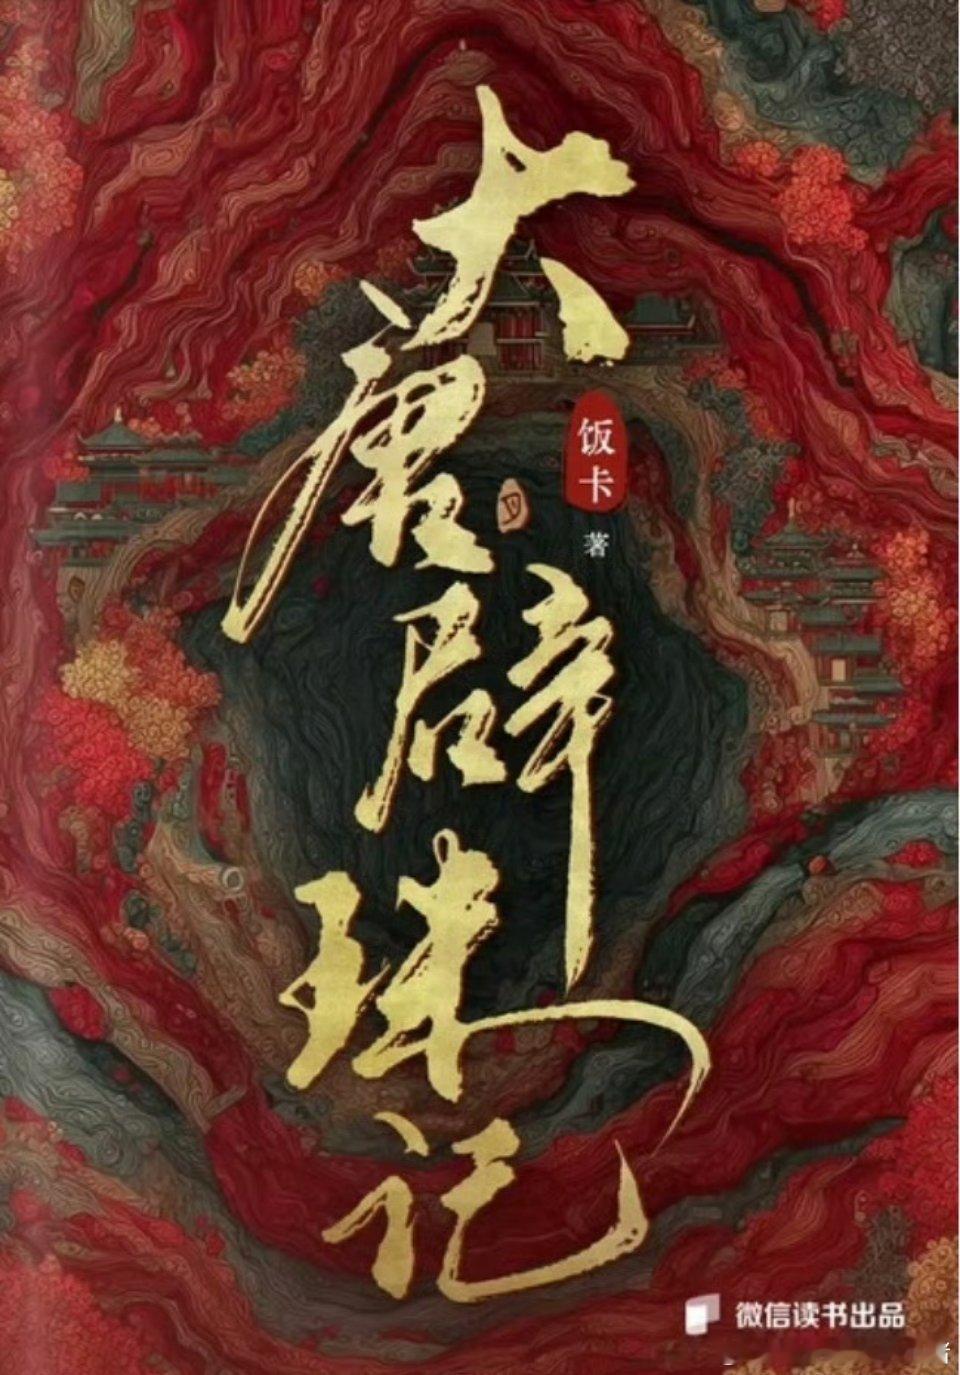 大唐辟珠记
饭卡
著
微信读书出品